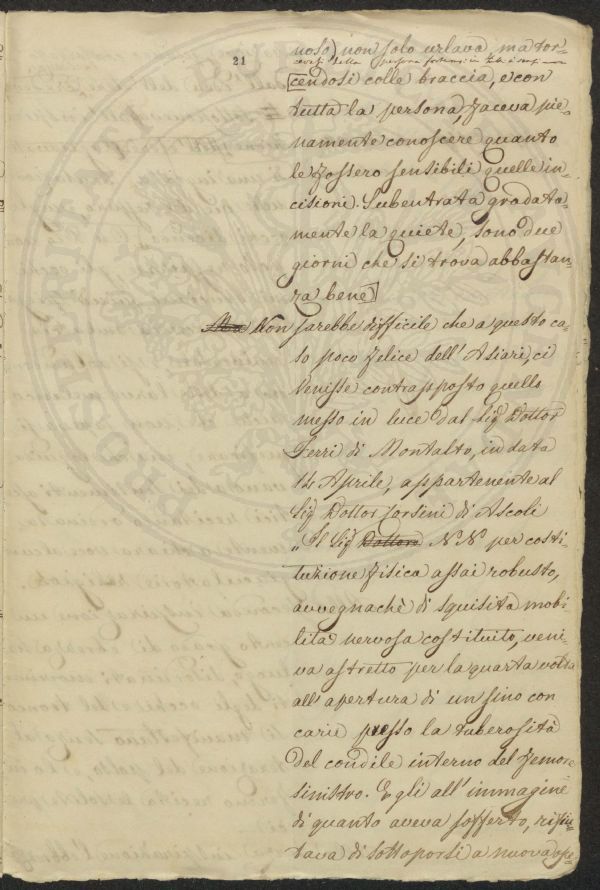 21
noso) non solo urlava, ma tor-
cendosi colle braccia, e con
tutta la persona, faceva pie-
namente conoscere quanto
le fossero sensibili quelle in-
cisioni. Subentrata gradata-
mente la quiete, sono due
giorni che si trova abbastan-
za bene]
Ma Non sarebbe difficile che a questo ca-
so poco felice dell'Asiari, ci
venisse contrapposto quello
messo in luce dal Sig Dottor
Ferri di Montalto, in data
14 Aprile, appartenente al
Sig Dottor Corsini di Ascoli
„Il Sig Dottore N.N. per costi-
tuzione fisica assai robusto,
avvegnachè di squisita mobi-
lità nervosa costituito, veni-
va astretto per la quarta volta
all'apertura di un sino con
carie presso la tuberosità
del condile interno del femore
sinistro. Egli all'immagine
di quanto aveva sofferto, rifiu-
tava di sottoporsi a nuova ope-